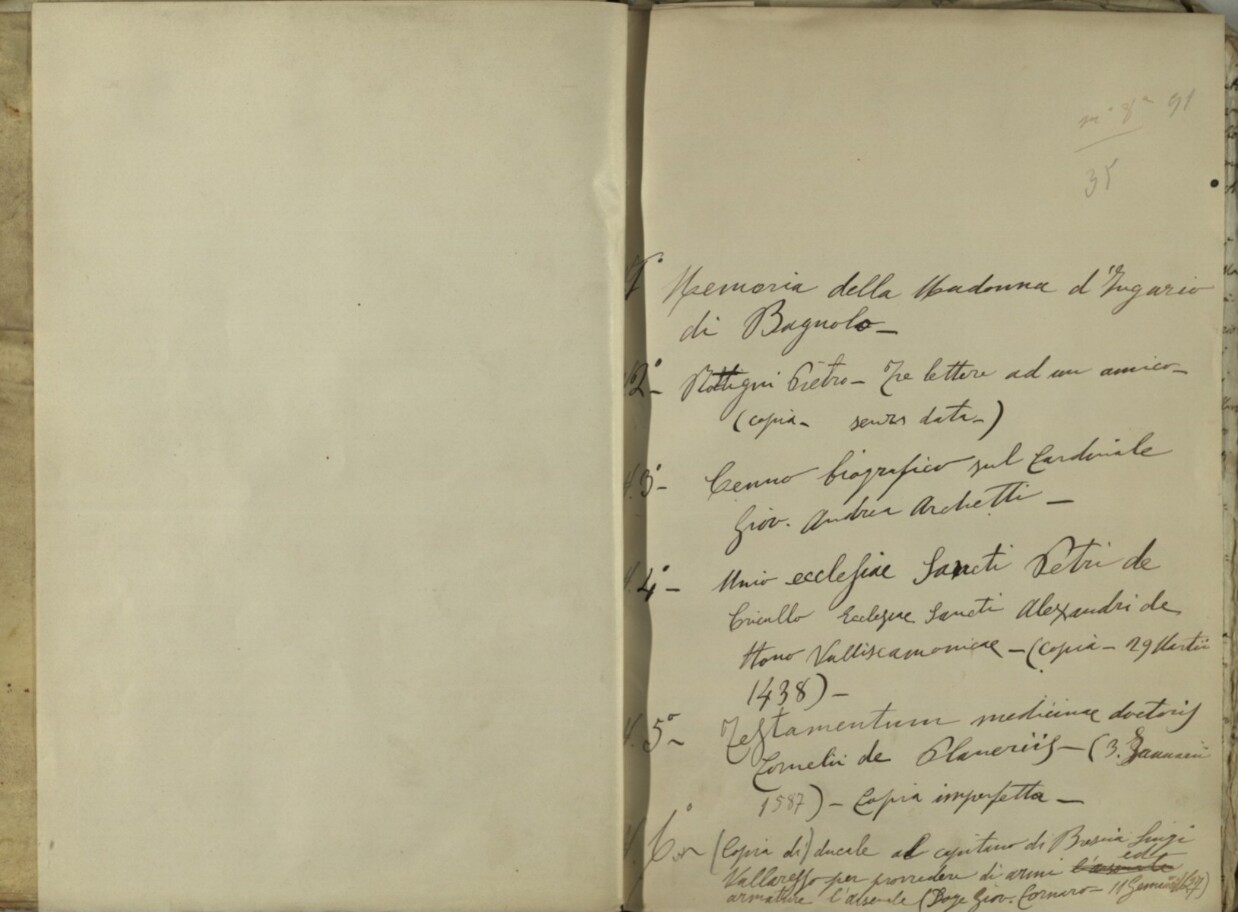 35
1° Memoria della Madonna d'
di Bagnolo –
2° – Pietro – Tre lettere ad un amico –
(copia – senza data –)
3° – Cenno biografico sul Cardinale
Giov. Andrea Archetti –
4° – Unio ecclesiae Sancti Petri de
Ecclesiae Sancti Alexandri de
Hono Valliscamonicae – (copia – 29 Martii
1438) –
5° – Testamentum medicinae doctoris
Cornelii de Planeriis – (3. Januarii
1587) – Copia imperfetta –
6° – (Copia di) ducale al capitano di Brescia Luigi
Vallaresso per provvedere di armi ed
armature l'arsenale (Doge Giov. Cornaro – 11